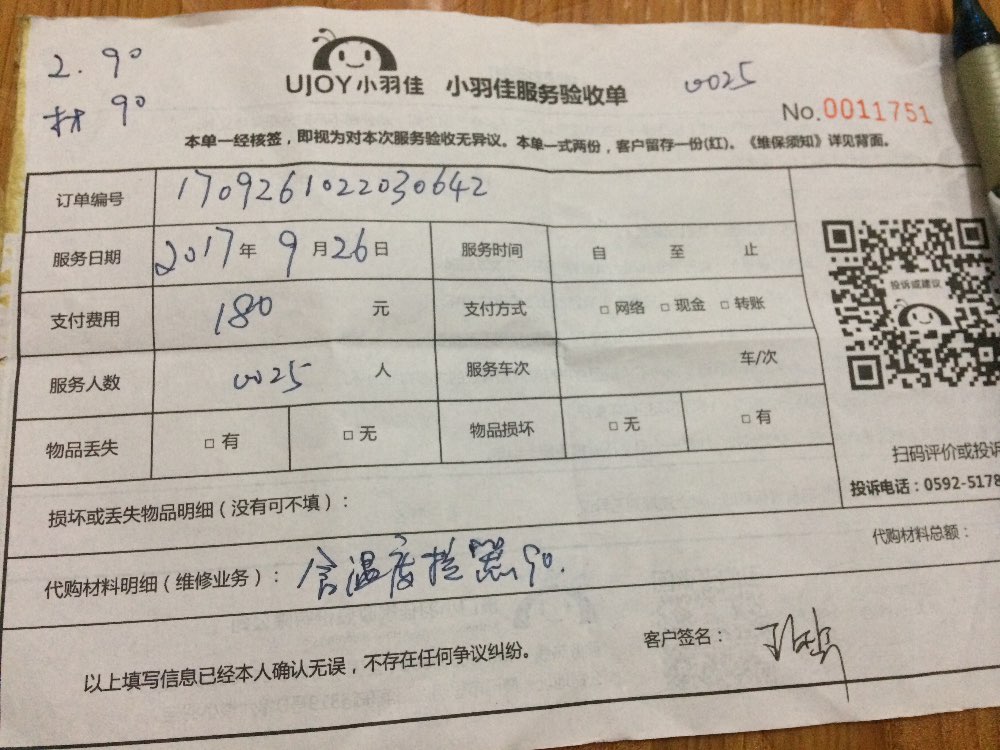 2. 90
材 90
UJOY小羽佳 小羽佳服务验收单
0025
No.0011751
本单一经核签，即视为对本次服务验收无异议。本单一式两份，客户留存一份(红)。《维保须知》详见背面。
订单编号 1709261022030642
服务日期 2017年 9月26日 服务时间 自 至 止
支付费用 180 元 支付方式 □ 网络 □ 现金 □ 转账
投诉或建议
服务人数 0025 人 服务车次 车/次
物品丢失 □ 有 □ 无 物品损坏 □ 无 □ 有
扫码评价或投诉
投诉电话：0592-5178
损坏或丢失物品明细（没有可不填）：
代购材料总额：
代购材料明细（维修业务）：含温度控器90.
以上填写信息已经本人确认无误，不存在任何争议纠纷。
客户签名：